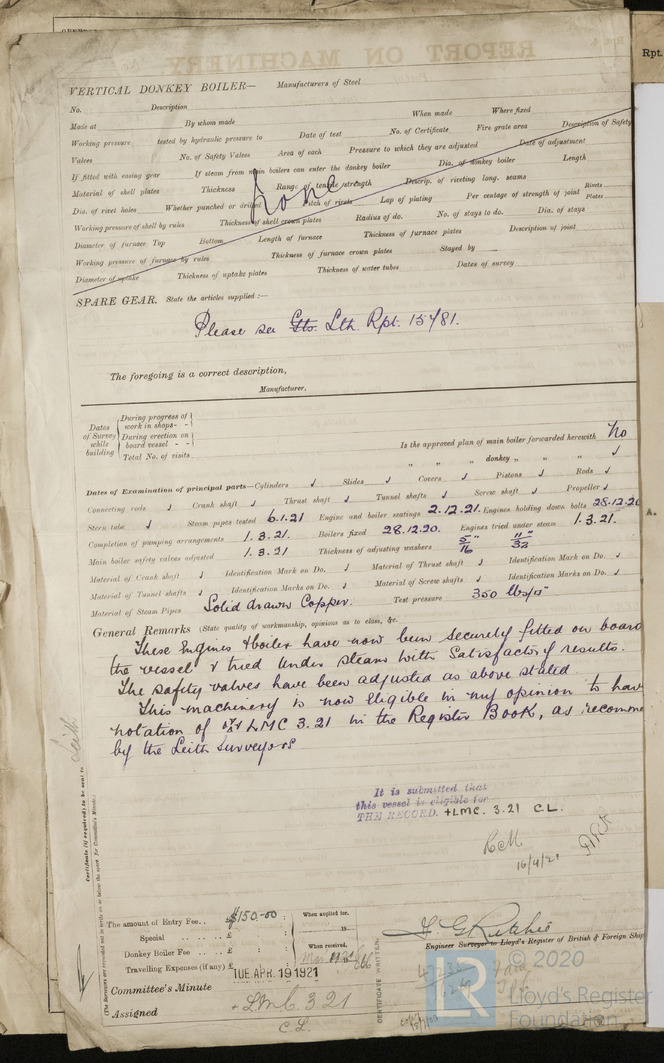 REPORT ON MACHINERY
Rpt.
VERTICAL DONKEY BOILER— Manufacturers of Steel
No. Description
Made at By whom made When made Where fixed
Working pressure tested by hydraulic pressure to Date of test No. of Certificate Fire grate area Description of Safety
Valves No. of Safety Valves Area of each Pressure to which they are adjusted Date of adjustment
If fitted with easing gear If steam from main boilers can enter the donkey boiler Dia. of donkey boiler Length
Material of shell plates Thickness Range of tensile strength Descrip. of riveting long. seams
none
Dia. of rivet holes Whether punched or drilled Pitch of rivets Lap of plating Per centage of strength of joint Rivets Plates
Working pressure of shell by rules Thickness of shell crown plates Radius of do. No. of stays to do. Dia. of stays
Diameter of furnace Top Bottom Length of furnace Thickness of furnace plates Description of joint
Working pressure of furnace by rules Thickness of furnace crown plates Stayed by
Diameter of uptake Thickness of uptake plates Thickness of water tubes Dates of survey
SPARE GEAR. State the articles supplied:—
Please see Lth. Rpt. 15781.
The foregoing is a correct description,
Manufacturer.
Dates of Survey while building
During progress of work in shops - -
During erection on board vessel - -
Total No. of visits
Is the approved plan of main boiler forwarded herewith No
" " donkey " " " ✓
Dates of Examination of principal parts—Cylinders ✓ Slides ✓ Covers ✓ Pistons ✓ Rods ✓
Connecting rods ✓ Crank shaft ✓ Thrust shaft ✓ Tunnel shafts ✓ Screw shaft ✓ Propeller ✓
Stern tube ✓ Steam pipes tested 6.1.21 Engine and boiler seatings 2.12.21. Engines holding down bolts 28.12.20
Completion of pumping arrangements 1.3.21. Boilers fixed 28.12.20. Engines tried under steam 1.3.21.
Main boiler safety valves adjusted 1.3.21 Thickness of adjusting washers 5/16" 11/32"
Material of Crank shaft ✓ Identification Mark on Do. ✓ Material of Thrust shaft ✓ Identification Mark on Do. ✓
Material of Tunnel shafts ✓ Identification Marks on Do. ✓ Material of Screw shafts ✓ Identification Marks on Do. ✓
Material of Steam Pipes Solid drawn Copper. Test pressure 350 lbs/□"
General Remarks (State quality of workmanship, opinions as to class, &c.
These Engines & boiler have now been securely fitted on board
the vessel & tried under steam with Satisfactory results.
The safety valves have been adjusted as above stated
This machinery is now eligible in my opinion to have
notation of LMC 3.21 in the Register Book, as recomme
by the Leith Surveyors
It is submitted that
this vessel is eligible for
THE RECORD. +LMC. 3.21 CL.
16/4/21
The amount of Entry Fee.. $150.00
Special .. £
Donkey Boiler Fee .. £
Travelling Expenses (if any) £
When applied for,
19
When received,
TUE. APR. 19 1921
F G Ritchie
Engineer Surveyor to Lloyd's Register of British & Foreign Ship
Committee's Minute
Assigned + LMC 3.21
C L.
Certificate (if required) to be sent to Leith
(The Surveyors are requested not to write on or below the space for Committee's Minute.)
CERTIFICATE WRITTEN
A.
© 2020
LR
Lloyd's Register
Foundation